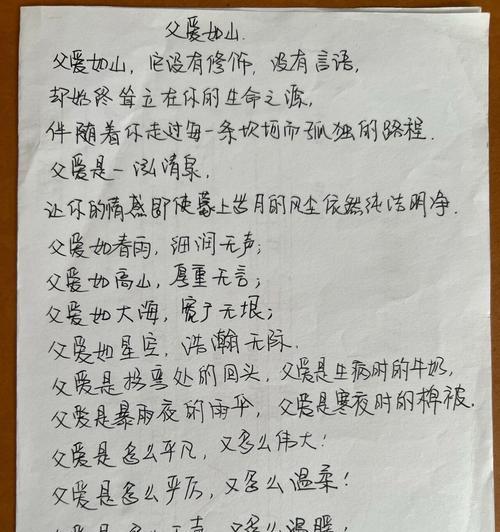 父爱如山.
父爱如山，它没有修饰，没有言语，
却始终耸立在你的生命之源，
伴随着你走过每一条坎坷而孤独的路程.
父爱是一泓清泉，
让你的情感即使蒙上岁月的风尘依然纯洁明净.
父爱如春雨，细润无声；
父爱如高山，厚重无言；
父爱如大海，宽广无垠；
父爱如星空，浩瀚无际.
父爱是拐弯处的回头，父爱是生病时的牛奶，
父爱是暴雨夜的雨伞，父爱是寒夜时的棉被.
父爱是多么平凡，又多么伟大！
父爱是多么严厉，又多么温柔！
父爱是多么无声，又多么温暖！